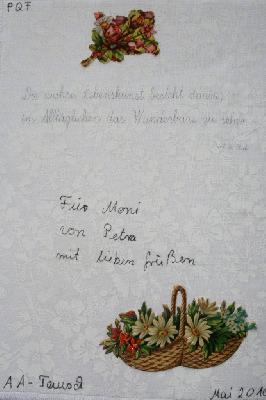 PQF
Die wahre Lebenskunst besteht darin,
im Alltäglichen das Wunderbare zu sehen.
Für Moni
von Petra
mit lieben Grüßen
AA-
Mai